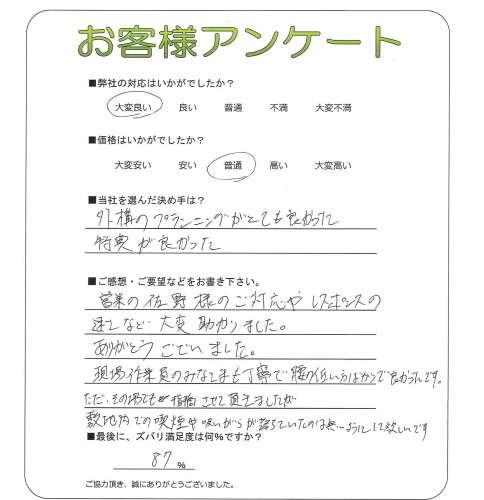 お客様アンケート
■弊社の対応はいかがでしたか？
大変良い 良い 普通 不満 大変不満
■価格はいかがでしたか？
大変安い 安い 普通 高い 大変高い
■当社を選んだ決め手は？
外構のプランニングがとても良かった
特典が良かった
■ご感想・ご要望などをお書き下さい。
営業の佐野様のご対応やレスポンスの
速さなど大変助かりました。
ありがとうございました。
現場作業員のみなさまも丁寧で腰の低い方ばかりで良かったです。
ただ、その場でも指摘させて頂きましたが
敷地内での喫煙や吸いがらが落ちていたのは無いようにして欲しいです
■最後に、ズバリ満足度は何%ですか？
87 %
ご協力頂き、誠にありがとうございました。